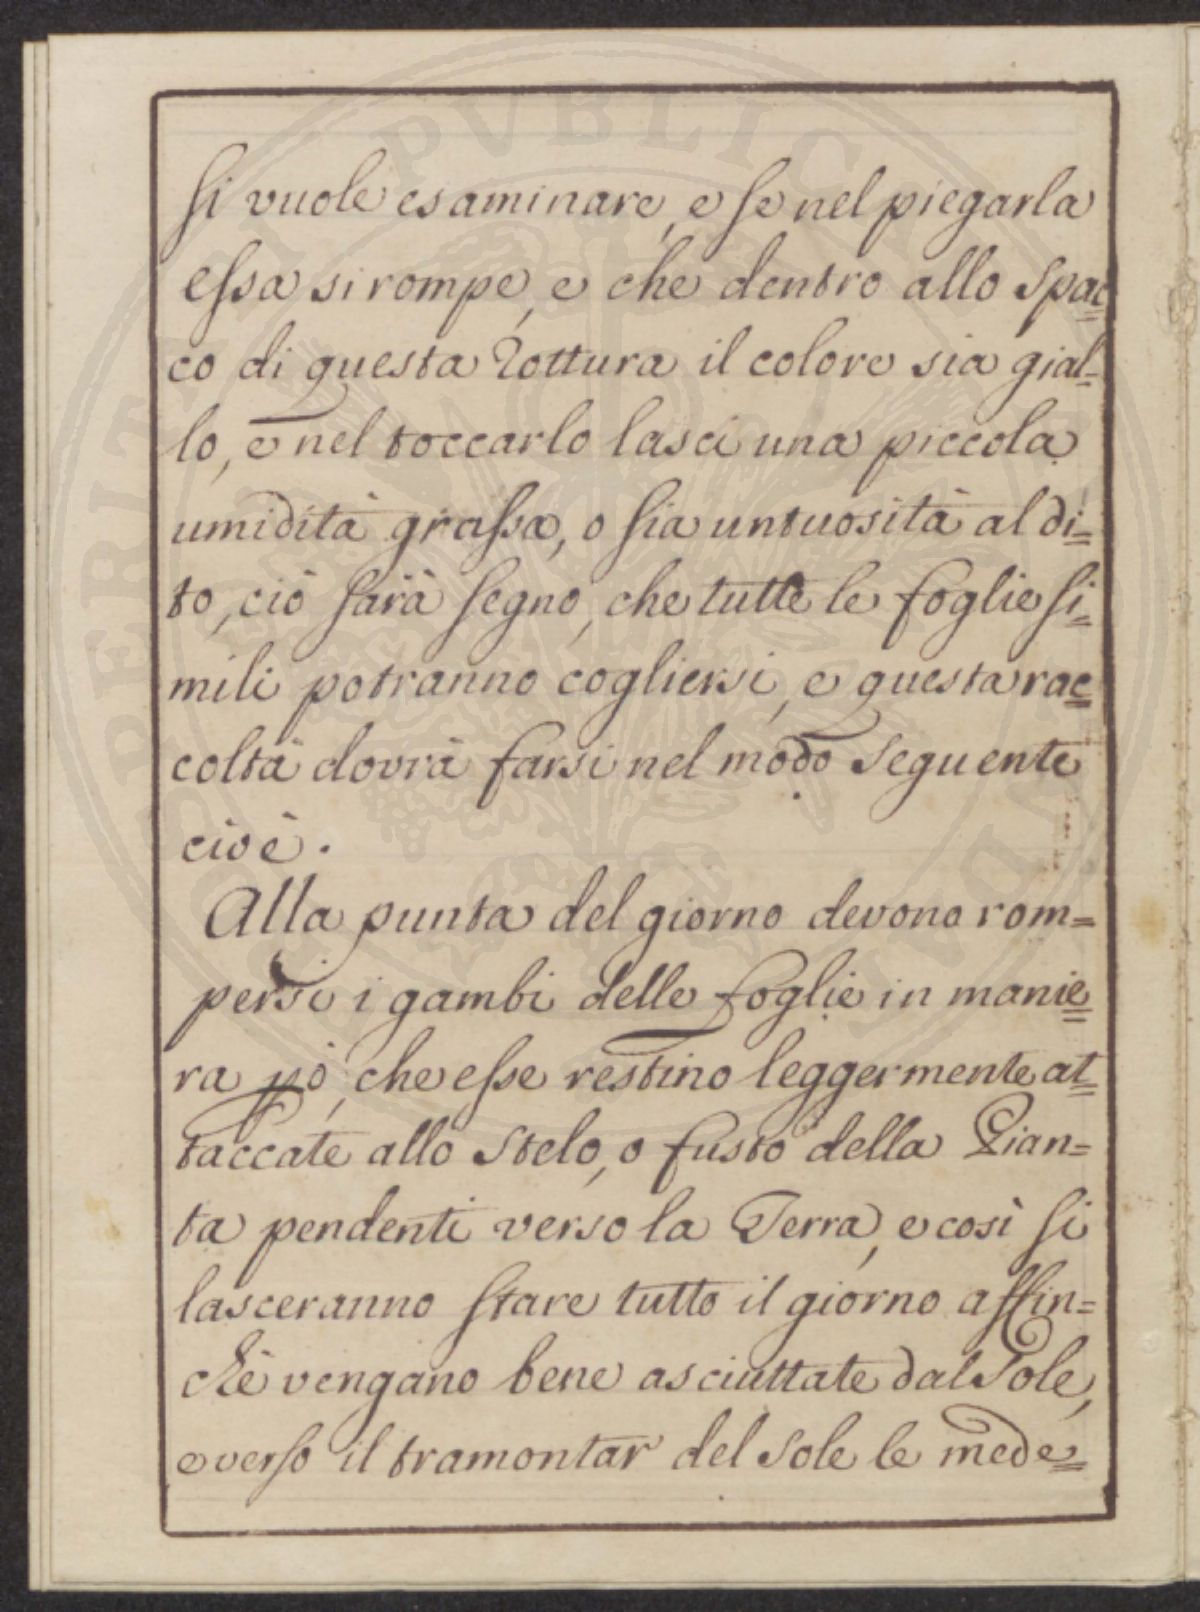 si vuole esaminare, e se nel piegarla
essa si rompe, e che dentro allo spac=
co di questa Rottura il colore sia gial=
lo, e nel toccarlo lasci una piccola
umidità grassa, o sia untuosità al di=
to, ciò sarà segno, che tutte le foglie si=
mili potranno cogliersi, e questa rac=
colta dovrà farsi nel modo seguente
cioè.
Alla punta del giorno devono rom=
persi i gambi delle foglie in manie=
ra pò, che esse restino leggermente at=
taccate allo stelo, o fusto della Pian=
ta pendenti verso la Terra, e così si
lasceranno stare tutto il giorno affin=
chè vengano bene asciuttate dal Sole,
e verso il tramontar del Sole le mede=